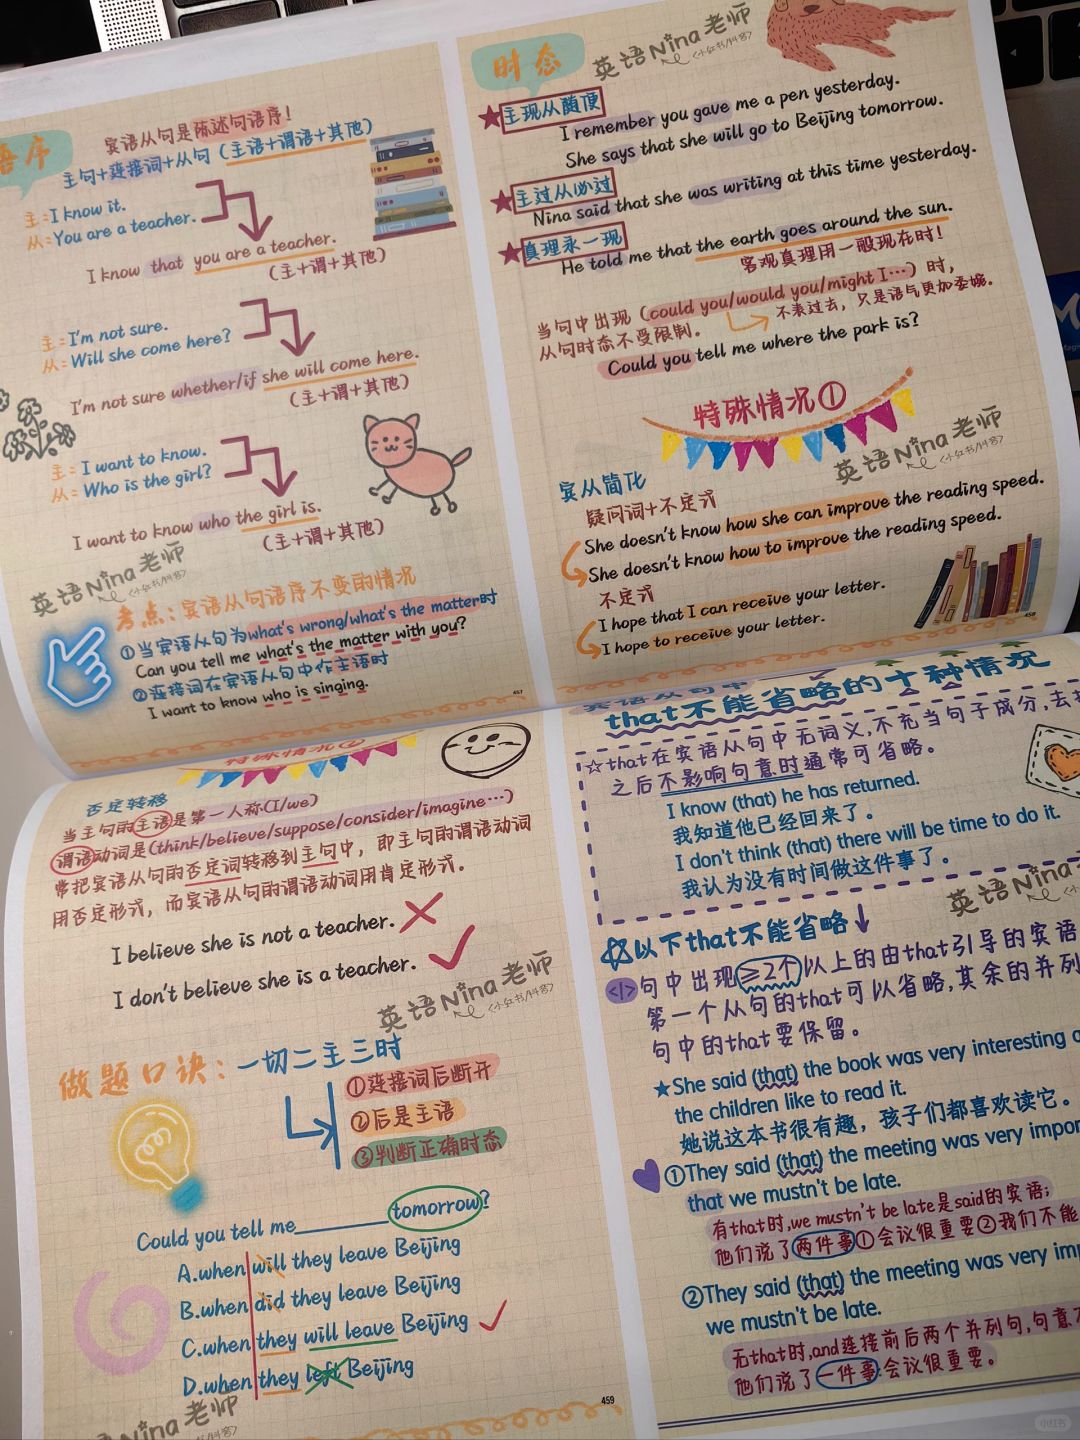 语序
宾语从句是陈述句语序！
主句+连接词+从句（主语+谓语+其他）
主=I know it.
从=You are a teacher.
I know that you are a teacher.
（主+谓+其他）
主=I'm not sure.
从=Will she come here?
I'm not sure whether/if she will come here.
（主+谓+其他）
主=I want to know.
从=Who is the girl?
I want to know who the girl is.
（主+谓+其他）
英语Nina老师
<小红书/抖音>
考点：宾语从句语序不变的情况
①当宾语从句为what's wrong/what's the matter时
Can you tell me what's the matter with you?
②连接词在宾语从句中作主语时
I want to know who is singing.
457
时态
英语Nina老师
<小红书/抖音>
主现从随便
I remember you gave me a pen yesterday.
She says that she will go to Beijing tomorrow.
主过从必过
Nina said that she was writing at this time yesterday.
真理永一现
He told me that the earth goes around the sun.
客观真理用一般现在时！
当句中出现（could you/would you/might I…）时，
从句时态不受限制。
不表过去，只是语气更加委婉。
Could you tell me where the park is?
特殊情况①
英语Nina老师
<小红书/抖音>
宾从简化
疑问词+不定式
She doesn't know how she can improve the reading speed.
She doesn't know how to improve the reading speed.
不定式
I hope that I can receive your letter.
I hope to receive your letter.
458
特殊情况②
否定转移
当主句的主语是第一人称(I/we)
谓语动词是(think/believe/suppose/consider/imagine…)
常把宾语从句的否定词转移到主句中，即主句的谓语动词
用否定形式，而宾语从句的谓语动词用肯定形式。
I believe she is not a teacher.
I don't believe she is a teacher.
英语Nina老师
<小红书/抖音>
做题口诀：一切二主三时
①连接词后断开
②后是主语
③判断正确时态
Could you tell me________tomorrow?
A.when will they leave Beijing
B.when did they leave Beijing
C.when they will leave Beijing
D.when they left Beijing
Nina老师
459
宾语从句中
that不能省略的十种情况
☆that在宾语从句中无词义,不充当句子成分,去掉
之后不影响句意时通常可省略。
I know (that) he has returned.
我知道他已经回来了。
I don't think (that) there will be time to do it.
我认为没有时间做这件事了。
英语Nina
以下that不能省略↓
<1>句中出现≥2个以上的由that引导的宾语
第一个从句的that可以省略,其余的并列
句中的that要保留。
★She said (that) the book was very interesting
the children like to read it.
她说这本书很有趣，孩子们都喜欢读它。
①They said (that) the meeting was very impor
that we mustn't be late.
有that时,we mustn't be late是said的宾语;
他们说了两件事①会议很重要②我们不能
②They said (that) the meeting was very im
we mustn't be late.
无that时,and连接前后两个并列句,句意
他们说了一件事:会议很重要。
小红书